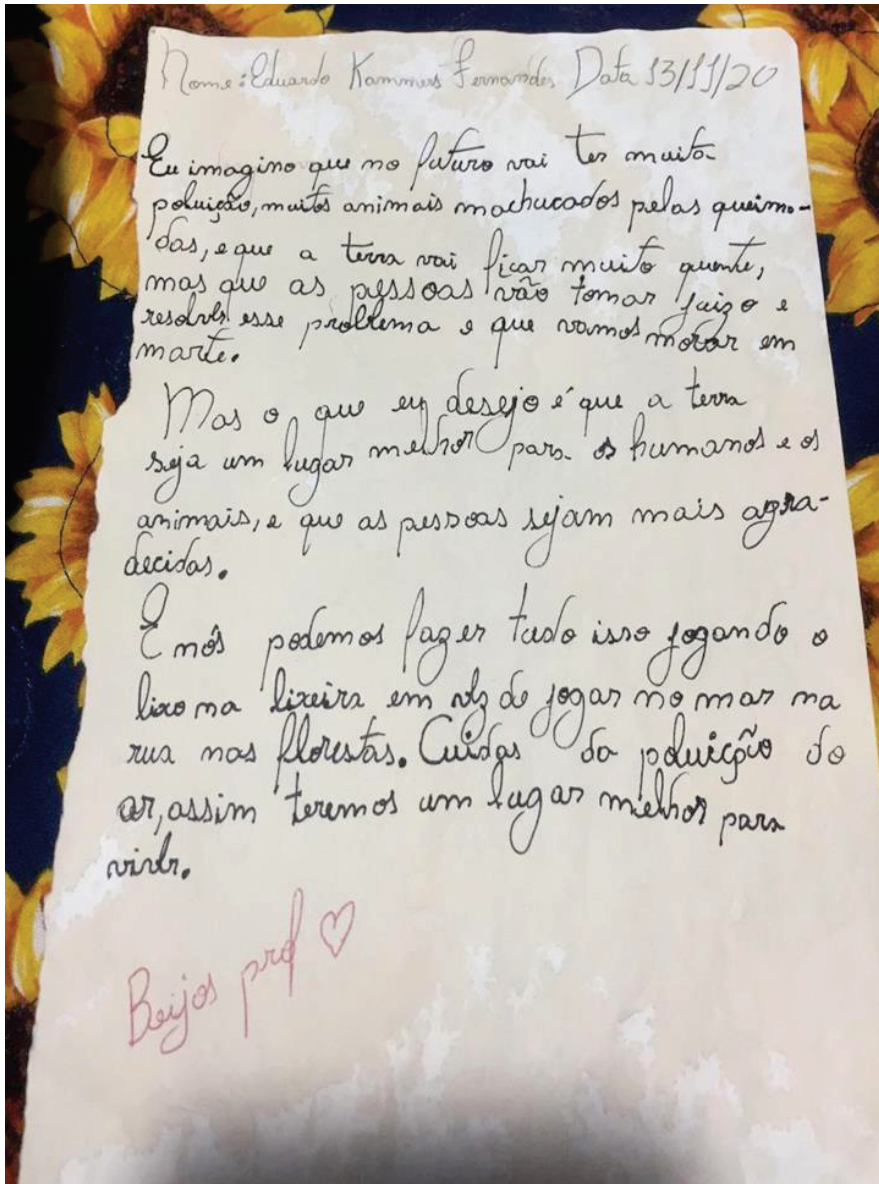 Nome: Eduardo Kammers Fernandes Data 13/11/20
Eu imagino que no futuro vai ter muita
poluição, muitos animais machucados pelas queima-
das, e que a terra vai ficar muito quente,
mas que as pessoas vão tomar juizo e
resolver esse problema e que vamos morar em
marte.
Mas o que eu desejo é que a terra
seja um lugar melhor para os humanos e os
animais, e que as pessoas sejam mais agra-
decidas.
E nós podemos fazer tudo isso jogando o
lixo na lixeira em vez de jogar no mar na
rua nas florestas. Cuidar da poluição do
ar, assim teremos um lugar melhor para
viver.
Beijos prof ♡